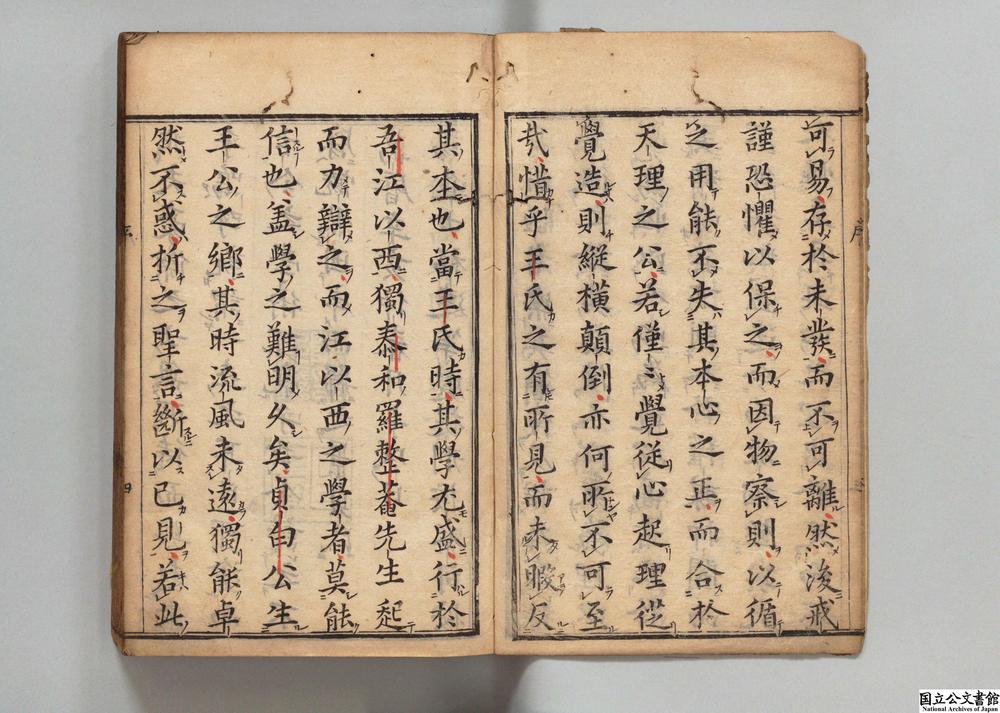 可易存於未發而不可離然後戒
謹恐懼以保之而因物察則以循
之用能不失其本心之正而合於
天理之公若僅〻覺従心起理從
覺造則縦横顛倒亦何所不可至
哉惜乎王氏之有所見而未暇反
其本也當王氏時其學尤盛行於
吾江以西獨泰和羅整菴先生起
而力辯之而江以西之學者莫能
信也盖學之難明久矣貞白公生
王公之鄉其時流風未遠獨能卓
然不惑析之聖言斷以已見若此
序
国立公文書館
National Archives of Japan